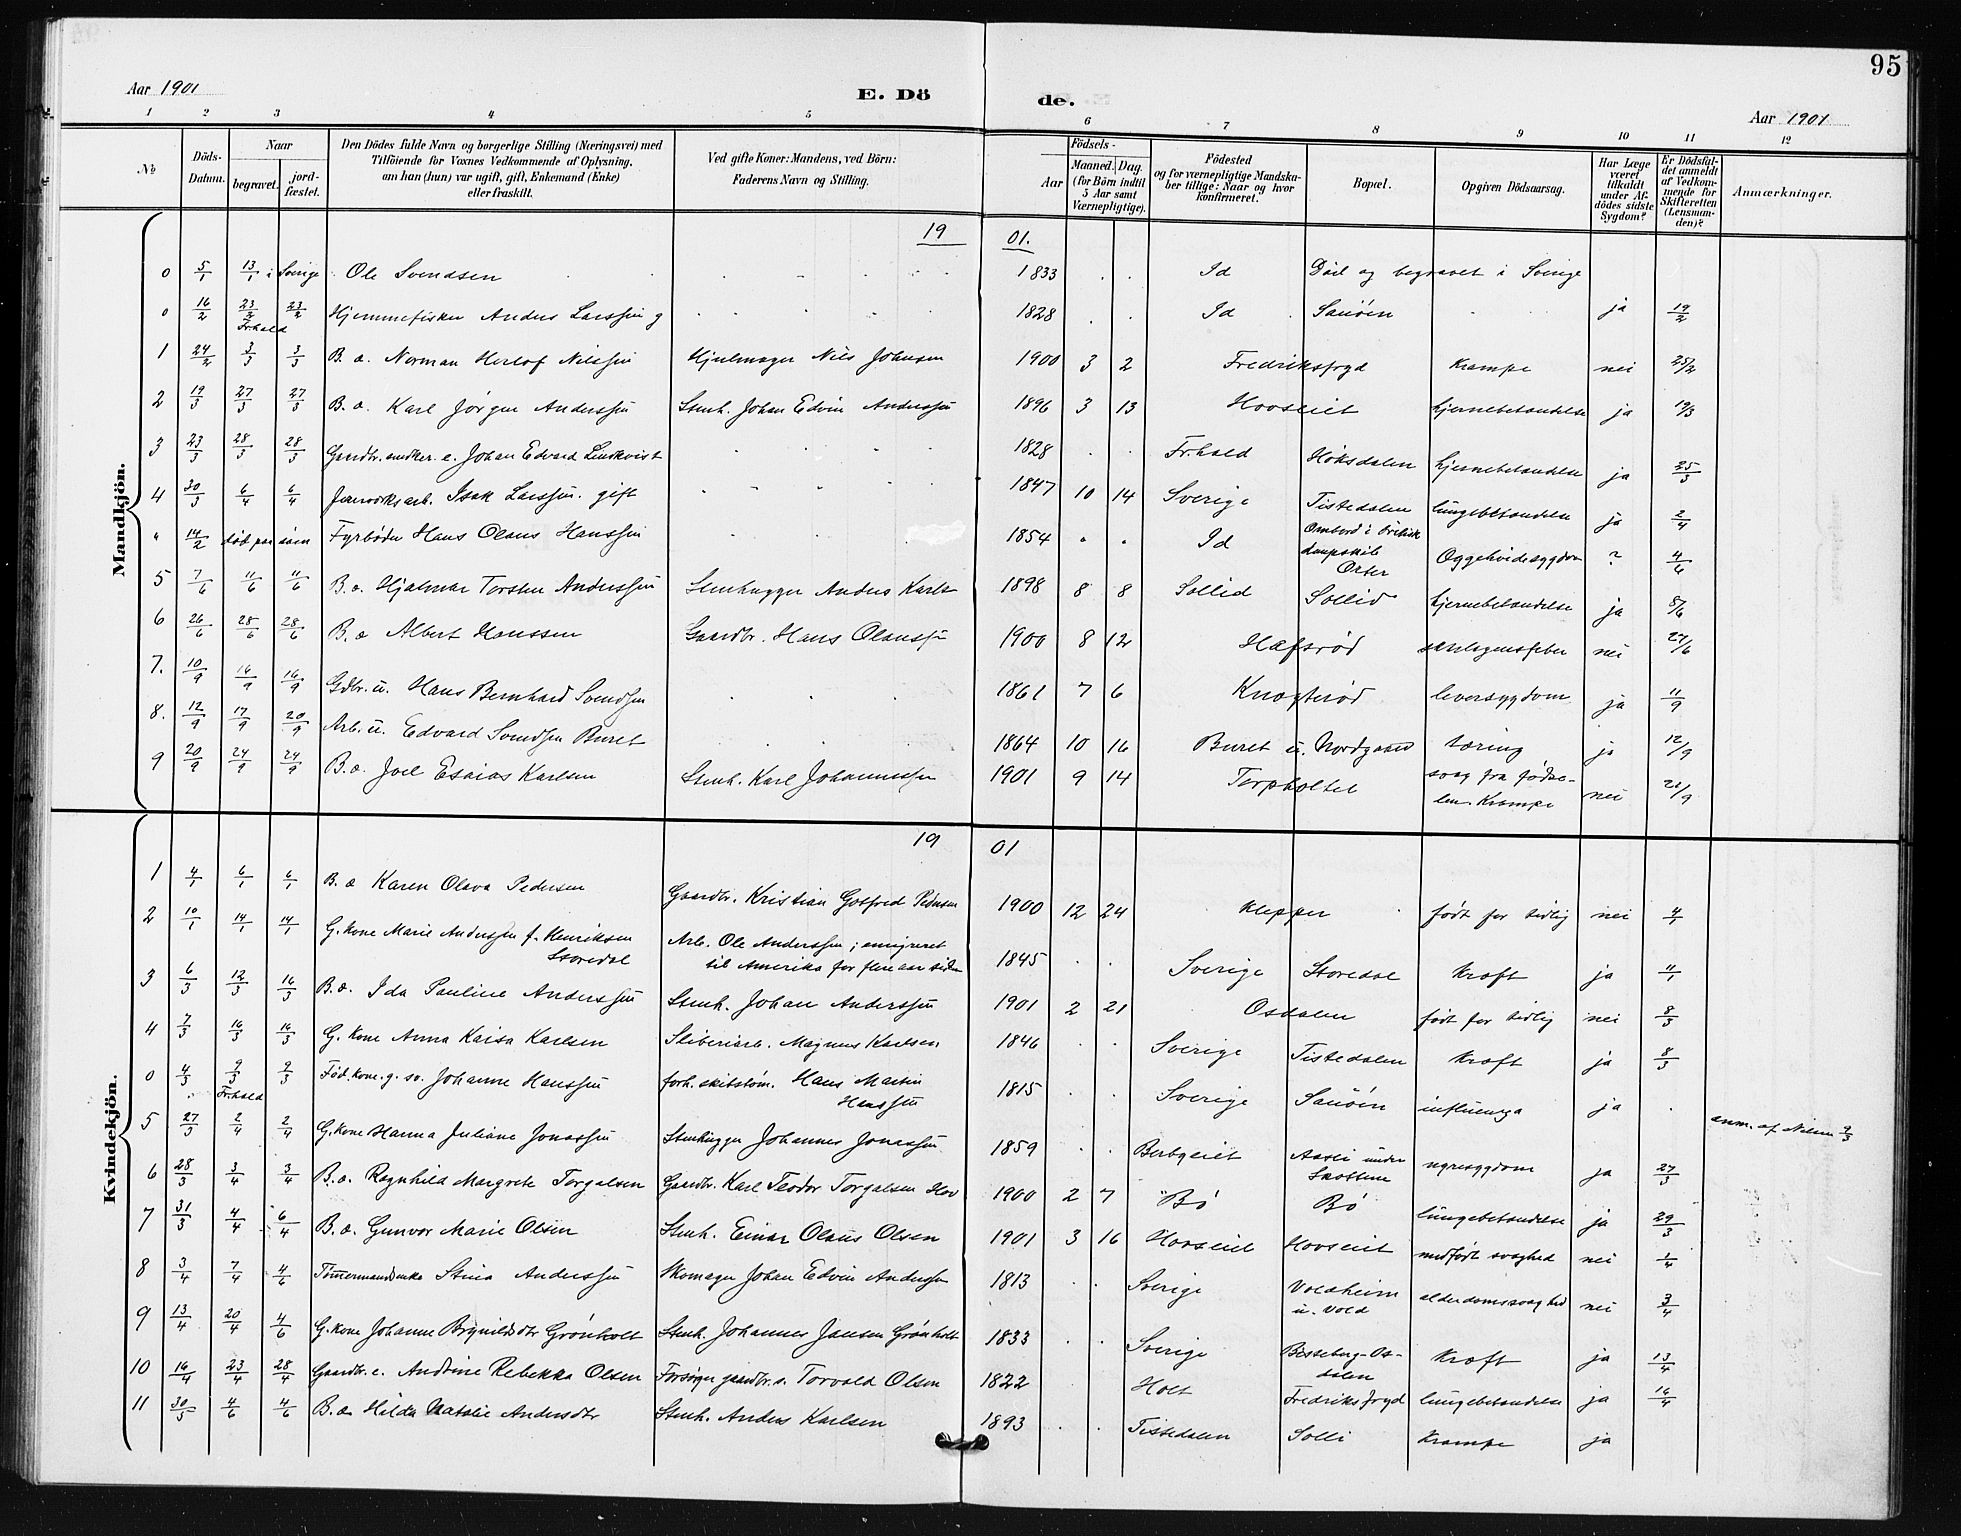 95
Aar 1901
E. Dö
de.
Aar 1901
1 2 3 4 5 6 7 8 9 10 11 12
No
Döds-Datum.
Naar
begravet.
jord-fæstet.
Den Dödes fulde Navn og borgerlige Stilling (Næringsvei) med
Tilföiende for Voxnes Vedkommende af Oplysning,
om han (hun) var ugift, gift, Enkemand (Enke)
eller fraskilt.
Ved gifte Koner: Mandens, ved Börn:
Faderens Navn og Stilling.
Födsels-
Aar
Maaned. Dag.
(for Börn indtil
5 Aar samt
Værnepligtige).
Födested
og for værnepligtige Mandska-
ber tillige: Naar og hvor
konfirmeret.
Bopæl.
Opgiven Dödsaarsag.
Har Læge
været
tilkaldt
under Af-
dödes sidste
Sygdom?
Er Dödsfal-
det anmeldt
af Vedkom-
mende for
Skifteretten
(Lensman-
den)?
Anmærkninger.
Mandkjön.
19 01.
0 5/1 13/1 i Sverige Ole Svendsen 1833 Id Død og begravet i Sverige
0 16/2 23/2 Fr.hald 23/2 Hjemmefisker Anders Larssen g 1828 Id Sauöen ja 19/2
1 24/2 3/3 3/3 B. æ. Norman Herlof Nilssen Hjulmager Nils Johnsen 1900 3 2 Fredriksfryd Krampe nei 25/2
2 19/3 27/3 27/3 B. æ. Karl Jørgen Anderssen Stenh. Johan Edvin Anderssen 1896 3 13 Hovseiet hjernebetændelse ja 19/3
3 23/3 28/3 28/3 Gaardbr. snedker. e. Johan Edvard Lindkvist 1828 Fr.hald Höksdalen hjernebetændelse ja 25/3
4 30/3 6/4 6/4 Jernverksarb. Isak Larssen. gift 1847 10 14 Sverige Tistedalen lungebetændelse ja 2/4
" 14/2 død paa søen Fyrbøder Hans Olaus Hanssen 1854 Id Ombord i britisk
dampskib
Orter ? 4/6
5 7/6 11/6 11/6 B. æ. Hjalmar Torsten Anderssen Stenhugger Anders Karls 1898 8 8 Sollid Sollid hjernebetændelse ja 8/6
6 26/6 28/6 28/6 B. æ Albert Hanssen Gaardbr. Hans Olaussen 1900 8 12 Hafsrød skarlagensfeber nei 27/6
7. 10/9 16/9 16/9 Gdbr. u. Hans Bernhard Svendsen 1861 7 6 Knogterød leversygdom ja 11/9
8. 12/9 17/9 20/9 Arb. u. Edvard Svendsen Buret 1864 10 16 Buret u. Nordgaard tæring ja 12/9
9 20/9 24/9 24/9 B. æ. Joel Esaias Karlsen Stenh. Karl Johannessen 1901 9 14 Torpholtet svag fra fødse-
len. Krampe nei 21/9
Kvindekjön.
19 01
1 4/1 6/1 6/1 B. æ Karen Olava Pedersen Gaardbr. Kristian Gotfred Pedersen 1900 12 24 Klepper født for tidlig nei 4/1
2 10/1 14/1 14/1 G. kone Marie Anderssen f. Henriksen
Storedal Arb. Ole Anderssen; emigreret
til Amerika for flere aar siden 1845 Sverige Storedal Kræft ja 11/1
3 6/3 12/3 16/3 B. æ. Ida Pauline Anderssen Stenh. Johan Anderssen 1901 2 21 Osdalen født for tidlig nei 8/3
4 7/3 16/3 16/3 G. kone Anna Kaisa Karlsen Sliberiarb. Magnus Karlsen 1846 Sverige Tistedalen Kræft ja 8/3
0 4/3 9/3 Fr.hald 9/3 Fød. kone. g. sv. Johanne Hanssen forh. skibstøm. Hans Martin
Hanssen 1815 Sverige Sauöen influenza ja anm. af Nilsen 9/3
5 27/3 2/4 2/4 G. kone Hanna Juliane Jonassen Stenhugger Johannes Jonassen 1859 Berbyeiet Aasli under
Skottene nyresygdom ja 27/3
6 28/3 3/4 3/4 B. æ. Ragnhild Margrete Torgalsen Gaardbr. Karl Teodor Torgalsen Hov 1900 2 7 Bø Bø lungebetændelse ja 29/3
7 31/3 4/4 6/4 B. æ. Gunvor Marie Olsen Stenh. Einar Olaus Olsen 1901 3 16 Hovseiet Hovseiet medfødt svaghed nei 1/4
8 3/4 7/4 4/6 Tømmermandsenke Stina Anderssen Skomager Johan Edvin Anderssen 1813 Sverige Voldheim
u. Vold alderdomssvaghed nei 3/4
9 13/4 20/4 4/6 G. kone Johanne Brynildsdtr Grønholt Stenh. Johannes Jansen Grønholt 1833 Sverige Besseberg-Os-
dalen Kræft ja 13/4
10 16/4 23/4 28/4 Gaardbr. e. Andrine Rebekka Olsen Forsørger gaardbr. s. Torvald Olsen 1822 Holt Fredriksfryd lungebetændelse ja 16/4
11 30/5 4/6 4/6 B. æ Hilda Natalie Andersdtr Stenh. Anders Karlsen 1893 Tistedalen Solli Krampe ja